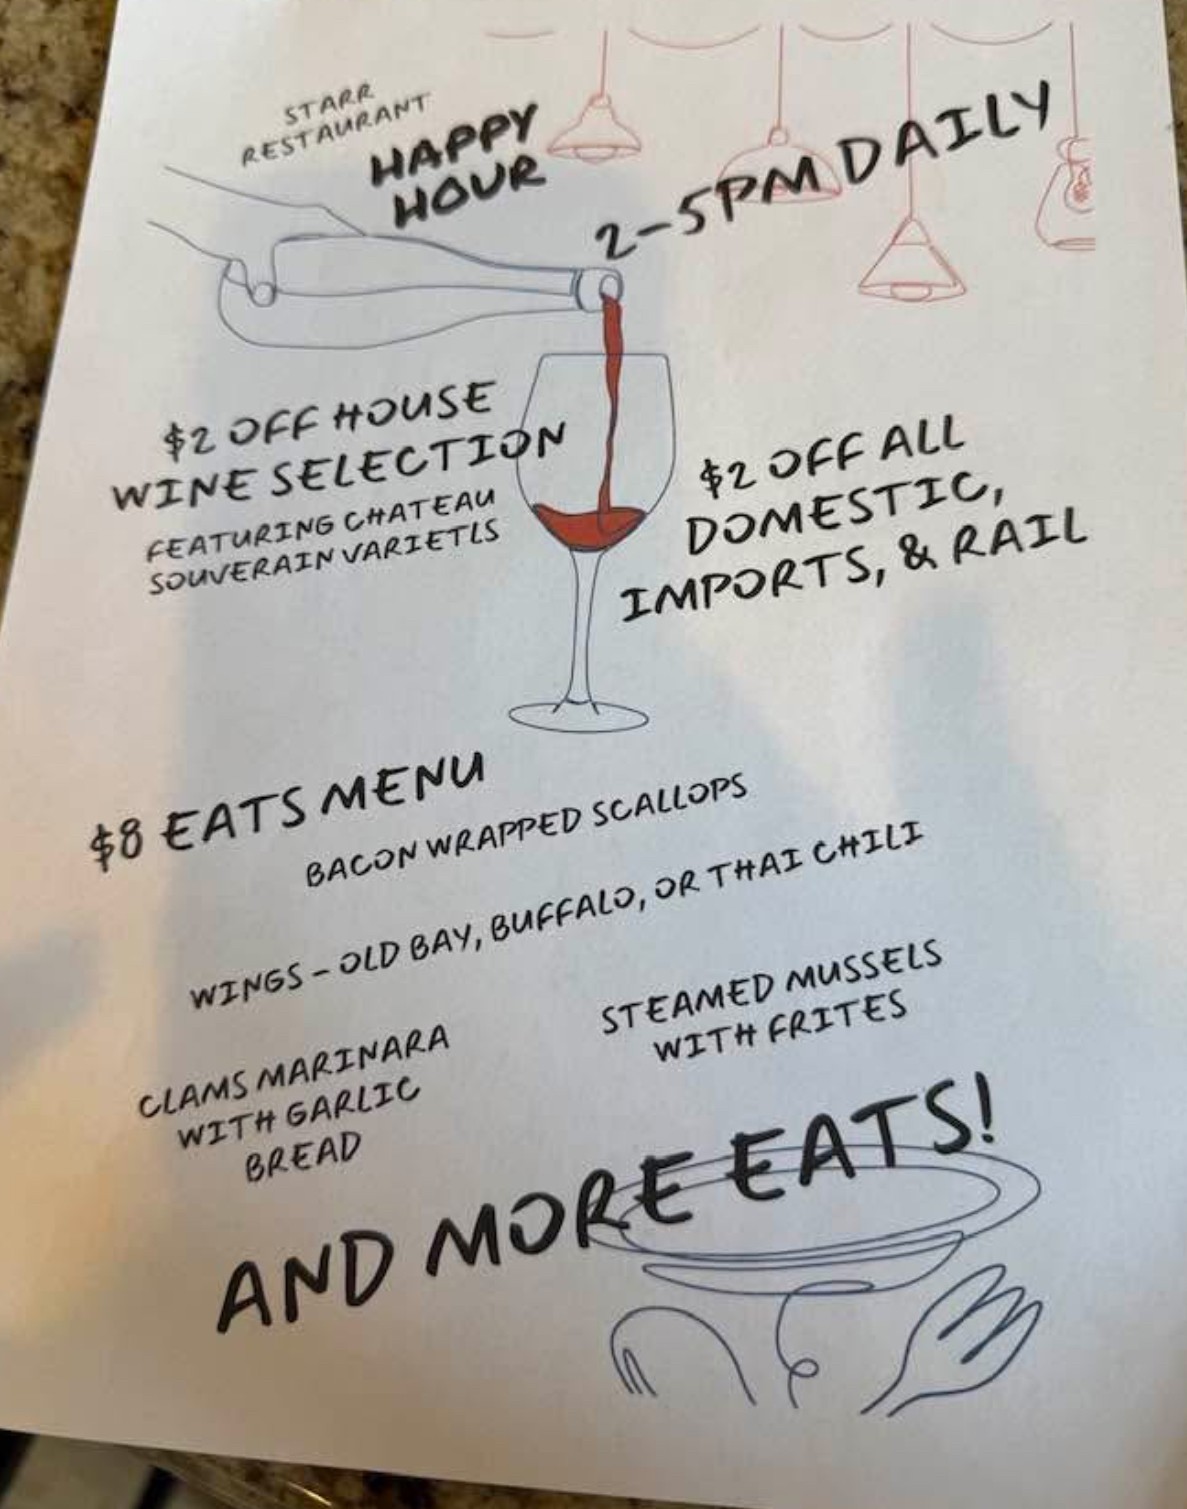 STARR
RESTAURANT
HAPPY
HOUR
2-5PM DAILY
$2 OFF HOUSE
WINE SELECTION
FEATURING CHATEAU
SOUVERAIN VARIETLS
$2 OFF ALL
DOMESTIC,
IMPORTS, & RAIL
$8 EATS MENU
BACON WRAPPED SCALLOPS
WINGS - OLD BAY, BUFFALO, OR THAI CHILI
STEAMED MUSSELS
WITH FRITES
CLAMS MARINARA
WITH GARLIC
BREAD
AND MORE EATS!